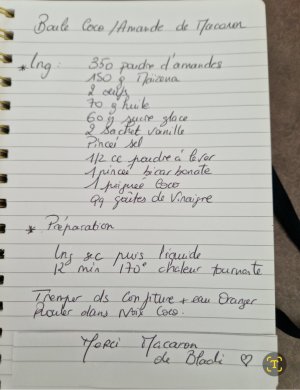 Boule Coco / Amande de Macaron
* Ing : 350 poudre d'amandes
150 g Maïzena
2 oeufs
70 g huile
60 g sucre glace
2 sachet vanille
Pincée sel
1/2 cc poudre à lever
1 pincée bicarbonate
1 poignée Coco
qq goûtes de Vinaigre
* Préparation
Ing sec puis liquide
12 min 170° chaleur tournante
Tremper ds Confiture + eau Oranger
Rouler dans Noix Coco.
Merci Macaron
de Bladi ♡